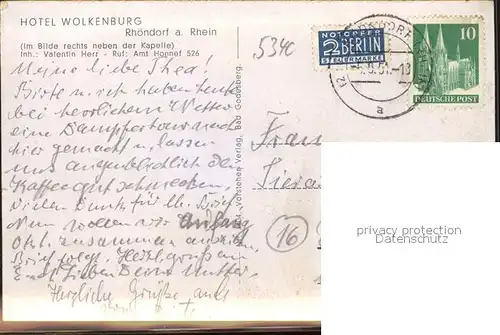 HOTEL WOLKENBURG
Rhöndorf a. Rhein
(Im Bilde rechts neben der Kapelle)
Inh.: Valentin Herr - Ruf: Amt Honnef 526
5340
NOTOPFER
2 BERLIN
STEUERMARKE
10
DEUTSCHE POST
a
Meine liebe Thea!
Birte u. ich haben heute
bei herrlichem Wetter
eine Dampfertour nach
hier gemacht u. lassen
uns augenblicklich den
Kaffee gut schmecken.
Vielen Dank für lb. Brief
Nun wollen wir Anfang
Okt. zusammen
Brief folgt. Herzl. grüßen
Deine Mutter.
Herzliche Grüße auch
Verlag, Bad Godesberg.
Frau
16
privacy protection
Datenschutz